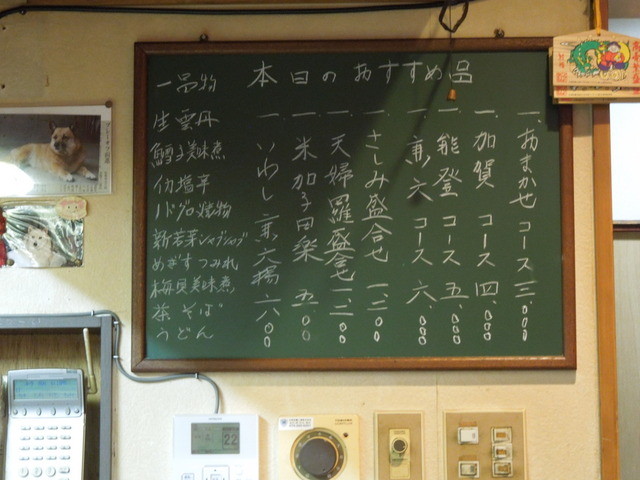 本日のおすすめ品
一、おまかせコース 三、〇〇〇
一、加賀コース 四、〇〇〇
一、能登コース 五、〇〇〇
一、兼六コース 六、〇〇〇
一、さしみ盛合せ 一、二〇〇
一、天婦羅盛合せ 一、二〇〇
一、米加子田楽 五〇〇
一、いわし兼六揚 六〇〇
一品物
生雲丹
鱈子美味煮
イカ塩辛
ノドグロ焼物
新若芽シャブシャブ
めぎすつみれ
梅貝美味煮
茶そば
うどん
22